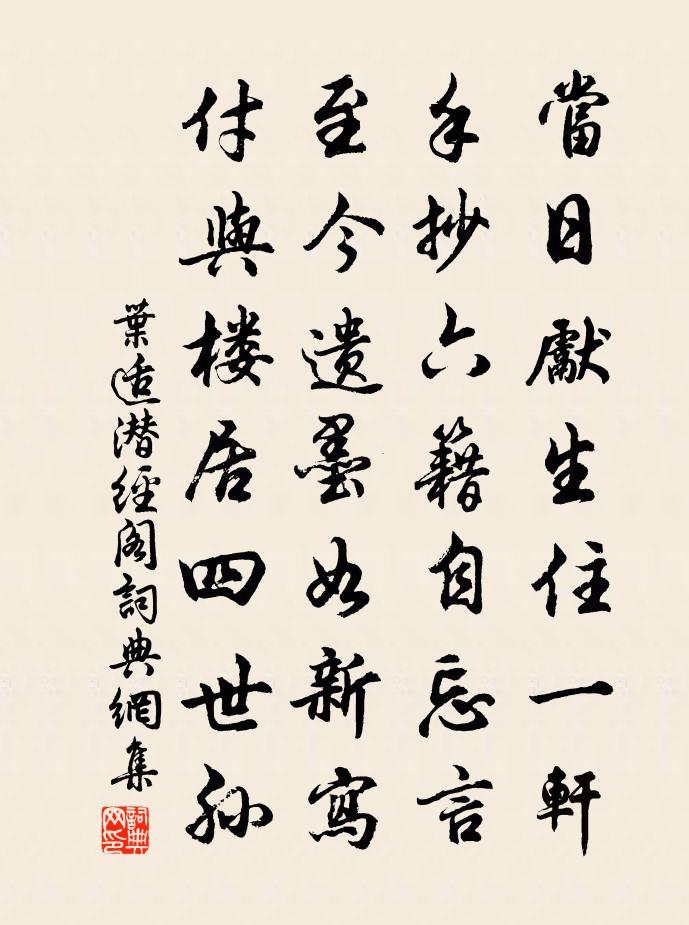 當日獻生住一軒
手抄六籍自忘言
至今遺墨如新寫
付與楼居四世孙
葉适潜經阁詞典網集
詞典網印